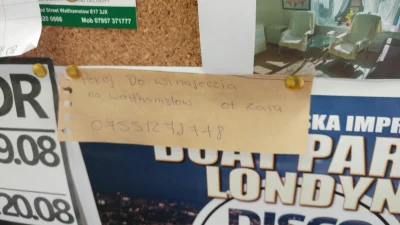 d Street Walthamstow E17 3JX
20 0606 Mob 07957 371777
Pokoj Do wynajecia
na walthamstow ot zara
OR
9.08
20.08
SKA IMPR
BOAT PAR
LONDYN
DISCO